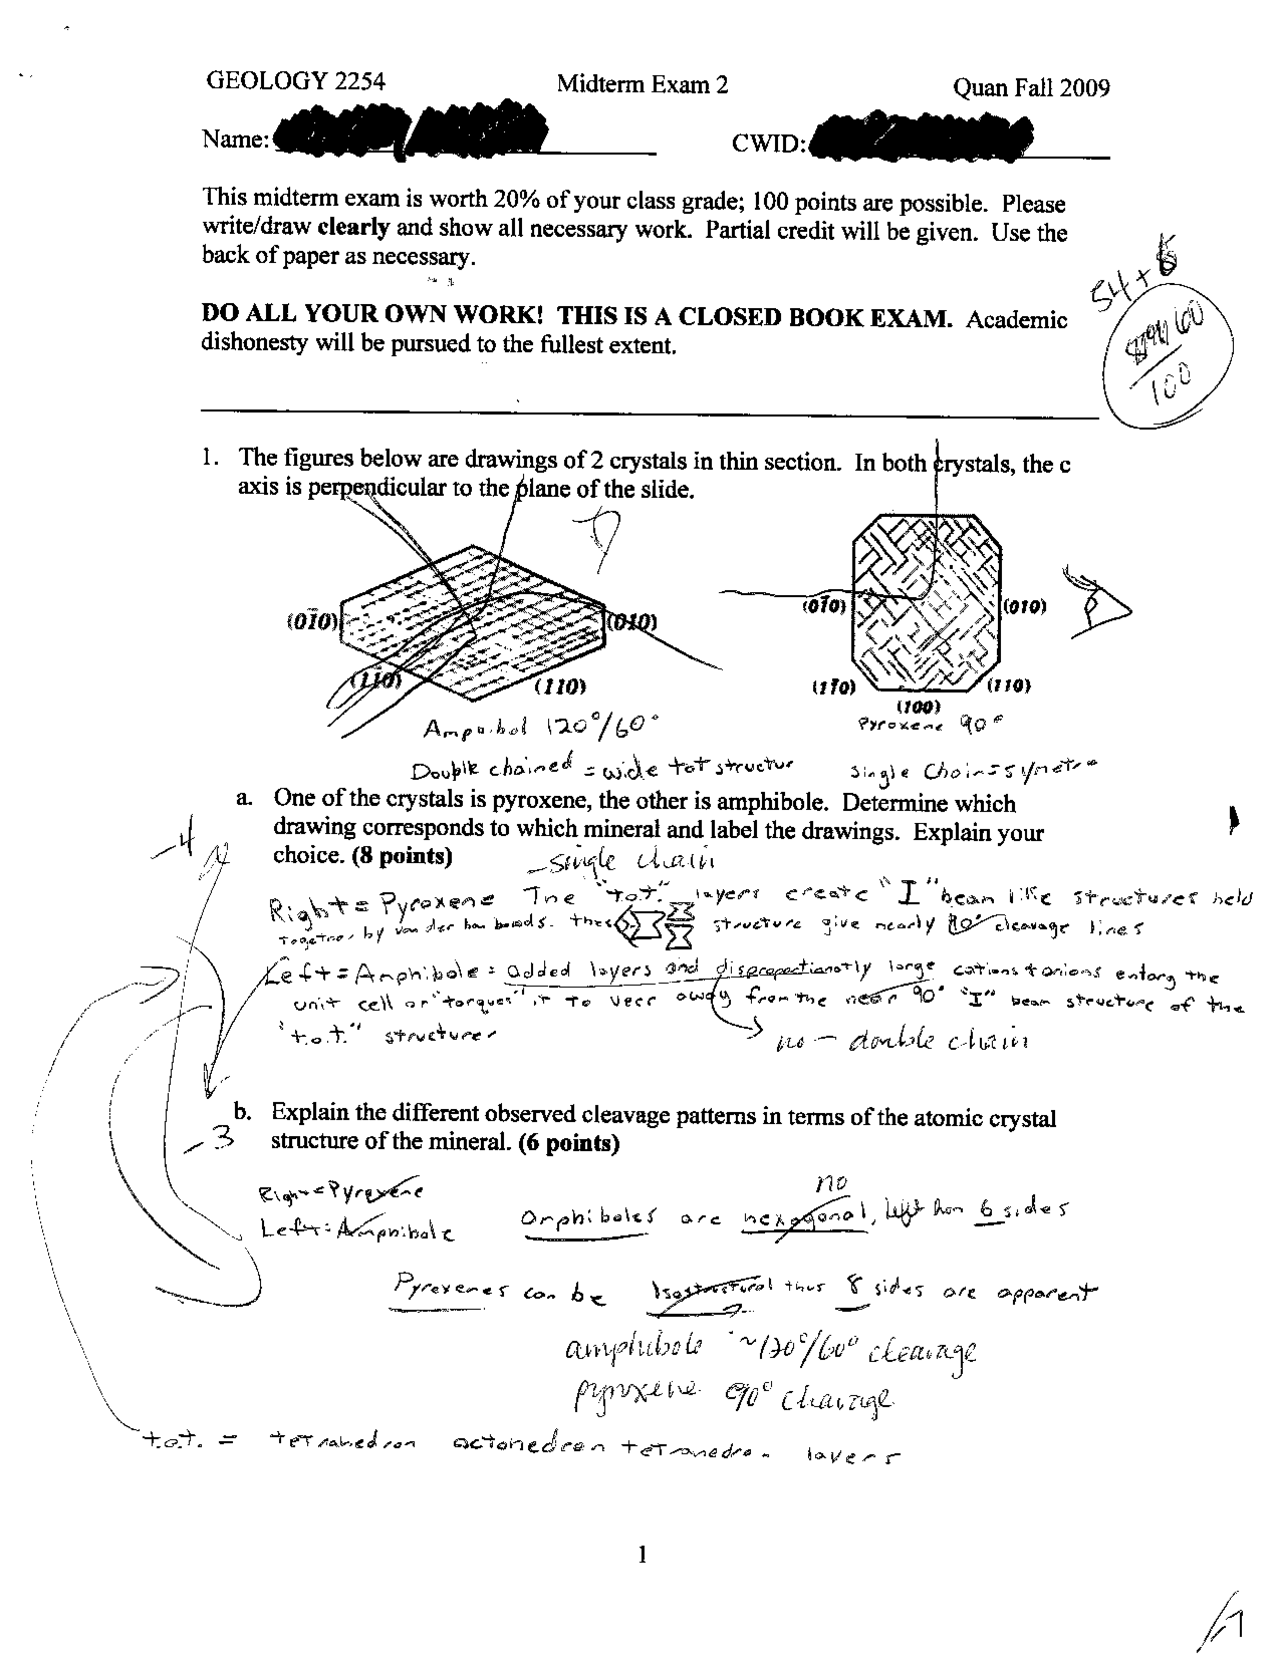 GEOLOGY 2254 Midterm Exam 2 Quan Fall 2009
Name: CWID:
This midterm exam is worth 20% of your class grade; 100 points are possible. Please
write/draw clearly and show all necessary work. Partial credit will be given. Use the
back of paper as necessary.
54+
DO ALL YOUR OWN WORK! THIS IS A CLOSED BOOK EXAM. Academic
dishonesty will be pursued to the fullest extent.
100
1. The figures below are drawings of 2 crystals in thin section. In both crystals, the c
axis is perpendicular to the plane of the slide.
(01̄0) (010) (01̄0) (010)
(11̄0) (110) (11̄0) (110)
(100)
120°/60° Pyroxene 90°
Double chained = wide tot structur single
a. One of the crystals is pyroxene, the other is amphibole. Determine which
drawing corresponds to which mineral and label the drawings. Explain your
-4
choice. (8 points) single chain
Right = Pyroxene The "t.o.t." layers create "I" beam like structures held
together by van der bonds. structure give nearly 90° cleavage lines
Left = Amphibole = added layers and large cations + anions the
unit cell or "torques" it to veer away from the near 90° "I" beam structure of the
"t.o.t." structure
no - double chain
b. Explain the different observed cleavage patterns in terms of the atomic crystal
-3
structure of the mineral. (6 points)
Right = Pyroxene no
Left = Amphibole are hexagonal, left 6 sides
Pyroxenes can be Isostructural thus 8 sides are apparent
amphibole ~120°/60° cleavage
pyroxene 90° cleavage
t.o.t. = layers
1